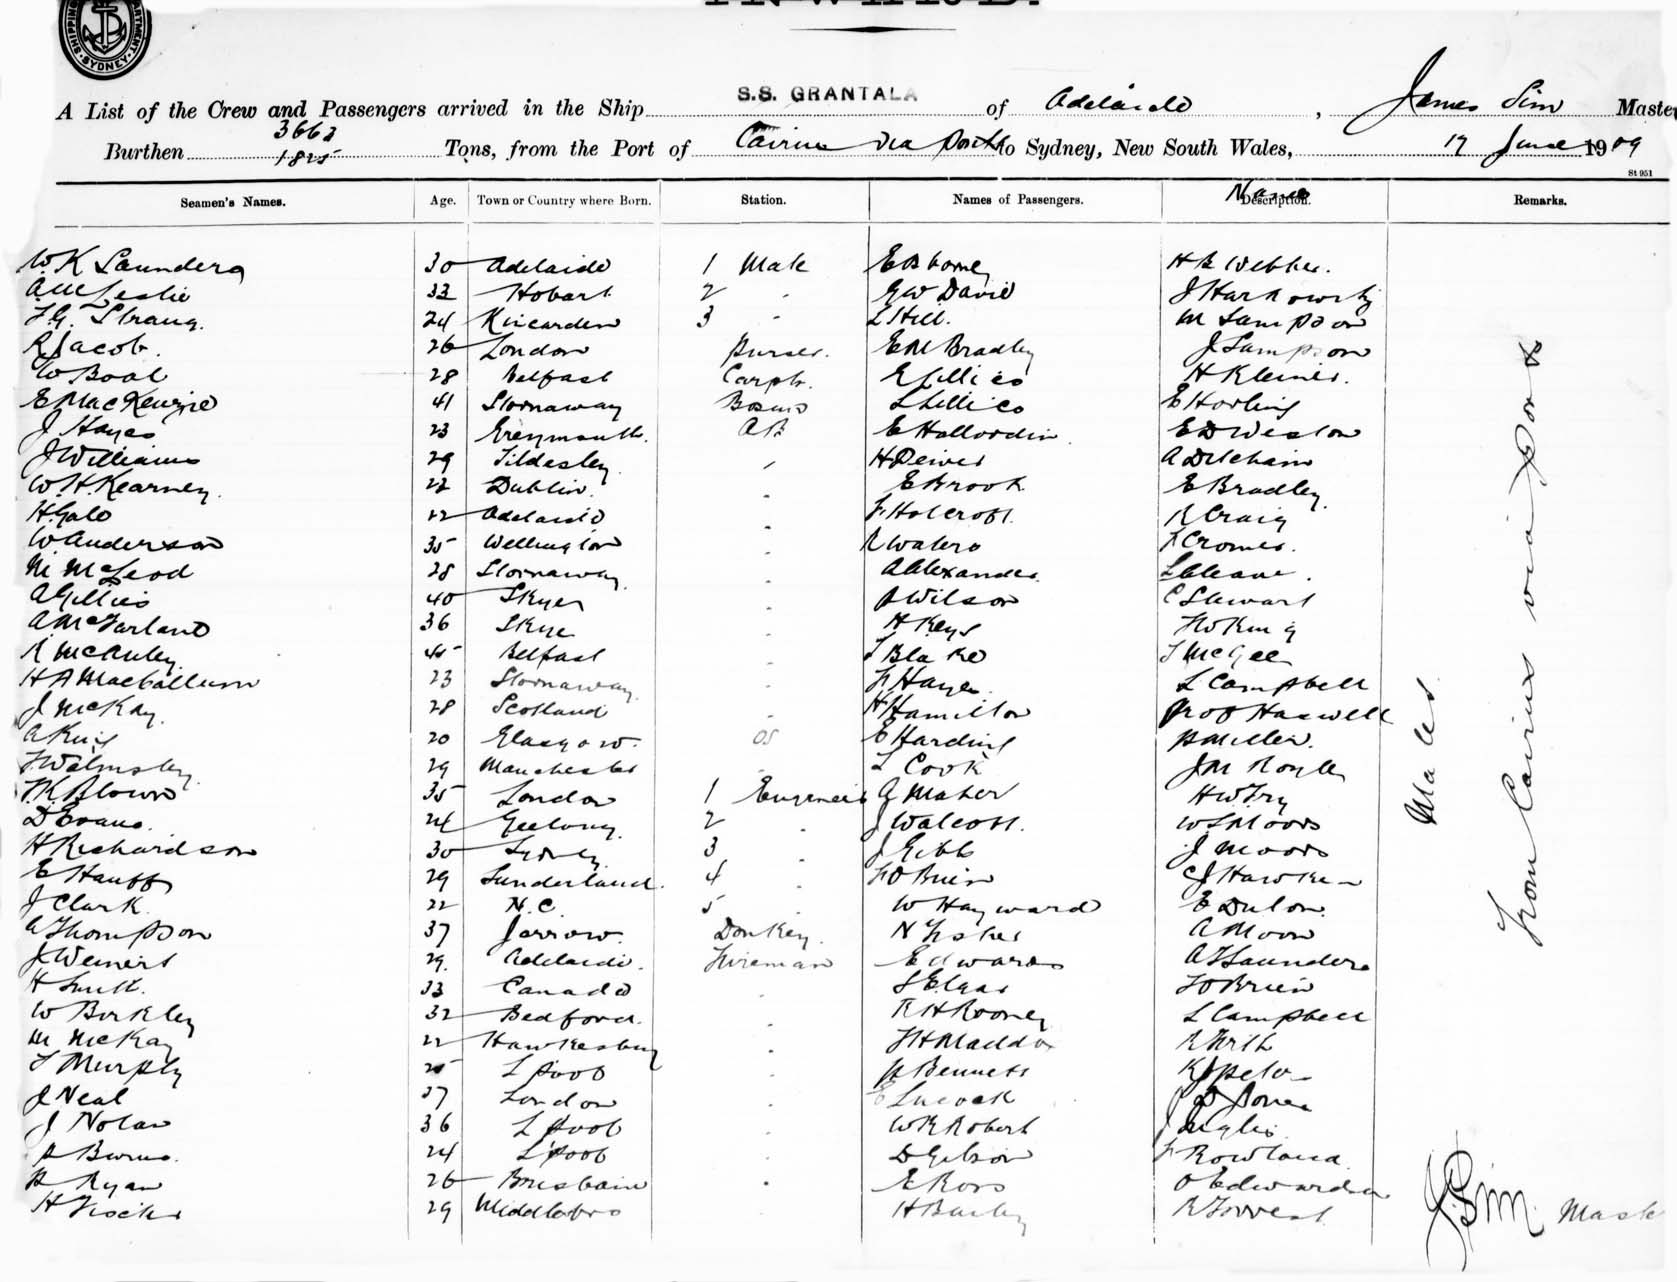 SHIPPING DEPARTMENT SYDNEY
INWARD.
A List of the Crew and Passengers arrived in the Ship S.S. GRANTALA of Adelaide, James Sim Master
Burthen 3663 1825 Tons, from the Port of Cairns via Ports to Sydney, New South Wales, 17 June 1909
St 951
Seamen's Names. Age. Town or Country where Born. Station. Names of Passengers. Name Description. Remarks.
W K Saunders 30 Adelaide 1 Mate H B Webber.
A M Leslie 33 Hobart 2 " G W David J Harkowitz
F.G. Strang. 24 Kincarden 3 " L Hill. M Sampson
R Jacob. 26 London Purser. E M Bradley J Sampson
W Boal 28 Belfast Carptr. E Lillico H Kleiner.
E MacKenzie 41 Stornaway Bosun L Lillico E Horling
J Hayes 23 Greymouth. AB E Hallordin E D Weston
J Williams 29 Tildesley. " A D Icham
W.H. Kearney. 22 Dublin. " E Brook E Bradley
H Gale 22 Adelaide " F Holcroft. R Craig
W Anderson 35 Wellington " R Waters F Cromer.
M McLeod 28 Stornaway " A Alexander L Cleave.
A Gillies 40 Skye " P Wilson C Stewart
A McFarland 36 Skye " H Keys F W King
R McAuley 45 Belfast " T Blake T McGee
H A MacCallum 23 Stornaway " F Hayes L Campbell
J McKay. 28 Scotland " H Hamilton Prof Haswell
A King 20 Glasgow. OS E Harding P Miller.
F Walmsley. 29 Manchester L Cook J M Royle
F.K. Blown 35 London 1 Engineer G Maher H W Fry
D Evans. 24 Geelong. 2 " J Walcott. W S Moors
H Richardson 30 Sydney 3 " J Gibb J Moors
E Hauff 29 Sunderland. 4 " F O Brien C J Hawken
J Clark. 22 N.C. 5 " W Hayward E Dulon.
A Thompson 37 Jarrow. Donkey. N Fisher A Moon
J Weinert 29. Adelaide. Fireman Edwards A Saunders
H Smith. 33 Canada " S Elgar F O Brien
W Birkley 32 Bedford. " R H Rooney L Campbell
M McKay 22 Hawkesbury " F H Maddox R Firth
T Murphy 25 L'pool " P Bennett
J Neal 37 London " E Lucock Jones
J Nolan 36 L'pool " W R Robert J Inglis
P Burns. 24 L'pool " D Gibson F Rowland.
P Ryan 26 Brisbane " E Ross
H Fischer 29 Middlebro H Bailey R Forrest
Males.
From Cairns via Ports
J Sim. Master